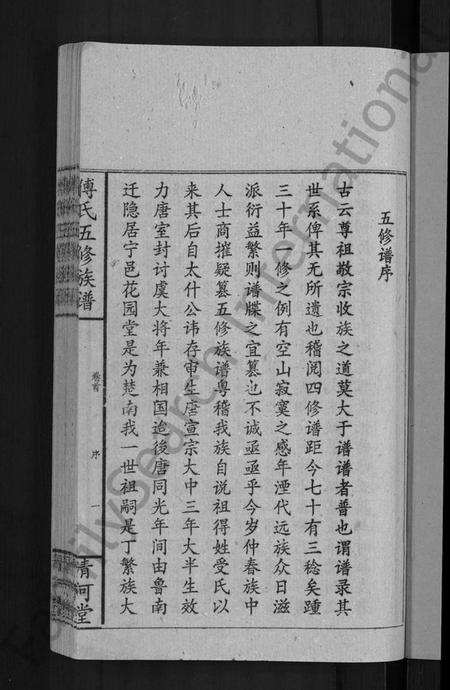 五修谱序
古云尊祖敬宗收族之道莫大于谱谱者普也谓谱录其
世系俾其无所遗也稽阅四修谱距今七十有三稔矣踵
三十年一修之例有空山寂寞之感年湮代远族众日滋
派衍益繁则谱牒之宜篡也不诚亟亟乎今岁仲春族中
人士商摧疑篡五修族谱粤稽我族自说祖得姓受氏以
来其后自太什公讳存审生唐宣宗大中三年大半生效
力唐室封讨虞大将年兼相国迨後唐同光年间由鲁南
迁隐居宁邑花园堂是为楚南我一世祖嗣是丁繁族大
傅氏五修族谱
卷首
序
一
清河堂
FamilySearch International